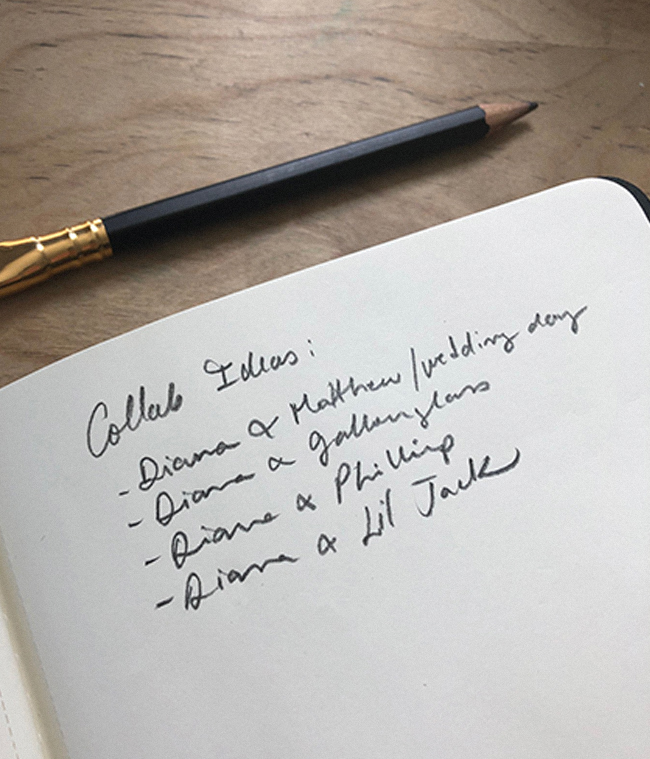 Collab Ideas:
- Diana & Matthew/wedding day
- Diana & gallowglass
- Diana & Phillip
- Diana & Lil Jack